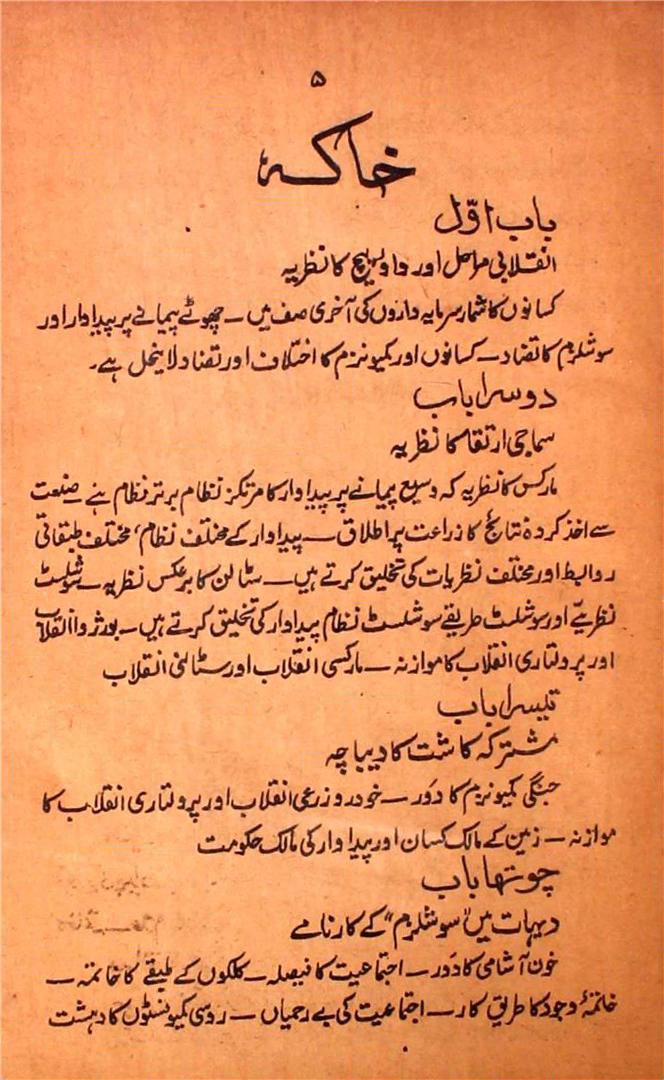 ۵
خاکہ
باب اوّل
انقلابی مراحل اور داؤ پیچ کا نظریہ
کسانوں کا شمار سرمایہ داروں کی آخری صف میں ۔ چھوٹے پیمانے پر پیداوار اور
سوشلزم کا تضاد ۔ کسانوں اور کمیونزم کا اختلاف اور تضاد لاینحل ہے۔
دوسرا باب
سماجی ارتقا کا نظریہ
مارکس کا نظریہ کہ وسیع پیمانے پر پیداوار کا مرتکز نظام برتر نظام ہے ۔ صنعت
سے اخذ کردہ نتائج کا زراعت پر اطلاق ۔ پیداوار کے مختلف نظام، مختلف طبقاتی
روابط اور مختلف نظریات کی تخلیق کرتے ہیں ۔ سٹالن کا برعکس نظریہ ۔ سوشلسٹ
نظریئے اور سوشلسٹ طریقے سوشلسٹ نظام پیداوار کی تخلیق کرتے ہیں ۔ بورژوا انقلاب
اور پرولتاری انقلاب کا موازنہ ۔ مارکسی انقلاب اور سٹالنی انقلاب
تیسرا باب
مشترکہ کاشت کا دیباچہ
جنگی کمیونزم کا دَور ۔ خودرو زرعی انقلاب اور پرولتاری انقلاب کا
موازنہ ۔ زمین کے مالک کسان اور پیداوار کی مالک حکومت
چوتھا باب
دیہات میں "سوشلزم" کے کارنامے
خون آشامی کا دَور ۔ اجتماعیت کا فیصلہ ۔ کلکوں کے طبقے کا خاتمہ ۔
خاتمۂ وجود کا طریق کار ۔ اجتماعیت کی بے رحمیاں ۔ روسی کمیونسٹوں کا دہشت